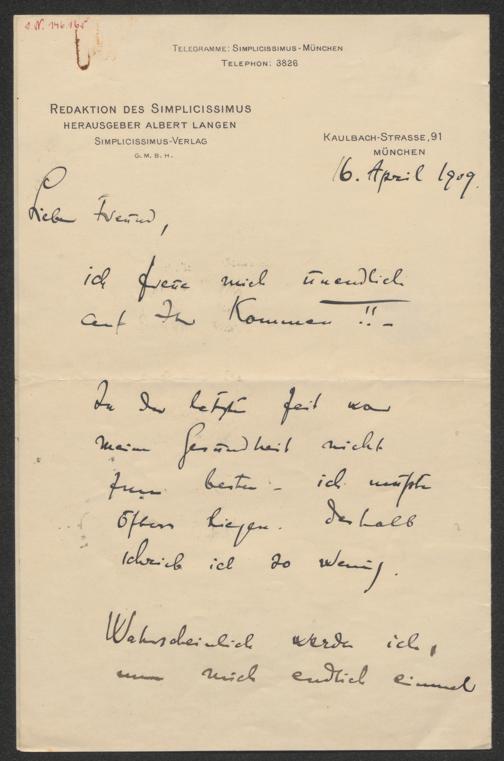 J. N. 146.165
TELEGRAMME: SIMPLICISSIMUS-MÜNCHEN
TELEPHON: 3826
REDAKTION DES SIMPLICISSIMUS
HERAUSGEBER ALBERT LANGEN
SIMPLICISSIMUS-VERLAG
G. M. B. H.
KAULBACH-STRASSE, 91
MÜNCHEN
16. April 1909.
Lieber Freund,
ich freue mich unendlich
auf Ihr Kommen!! –
In der letzten Zeit war
meine Gesundheit nicht
zum besten – ich mußte
öfters liegen. Deshalb
schrieb ich so wenig.
Wahrscheinlich werde ich,
um mich endlich einmal